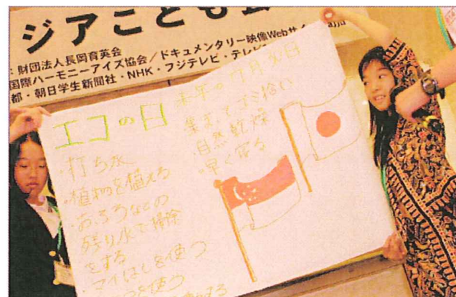 ジアこども
:財団法人長岡育英会
国際ハーモニーアイズ協会/ドキュメンタリー映像Webサイ
都・朝日学生新聞社・NHK・フジテレビ・テレビ
エコの日
・打ち水
・植物を植える
・おふろなどの
残り水で掃除
をする
・マイはしを使う
を使う
毎年の7月
集めてゴミ拾い
自然乾燥
・早く寝る